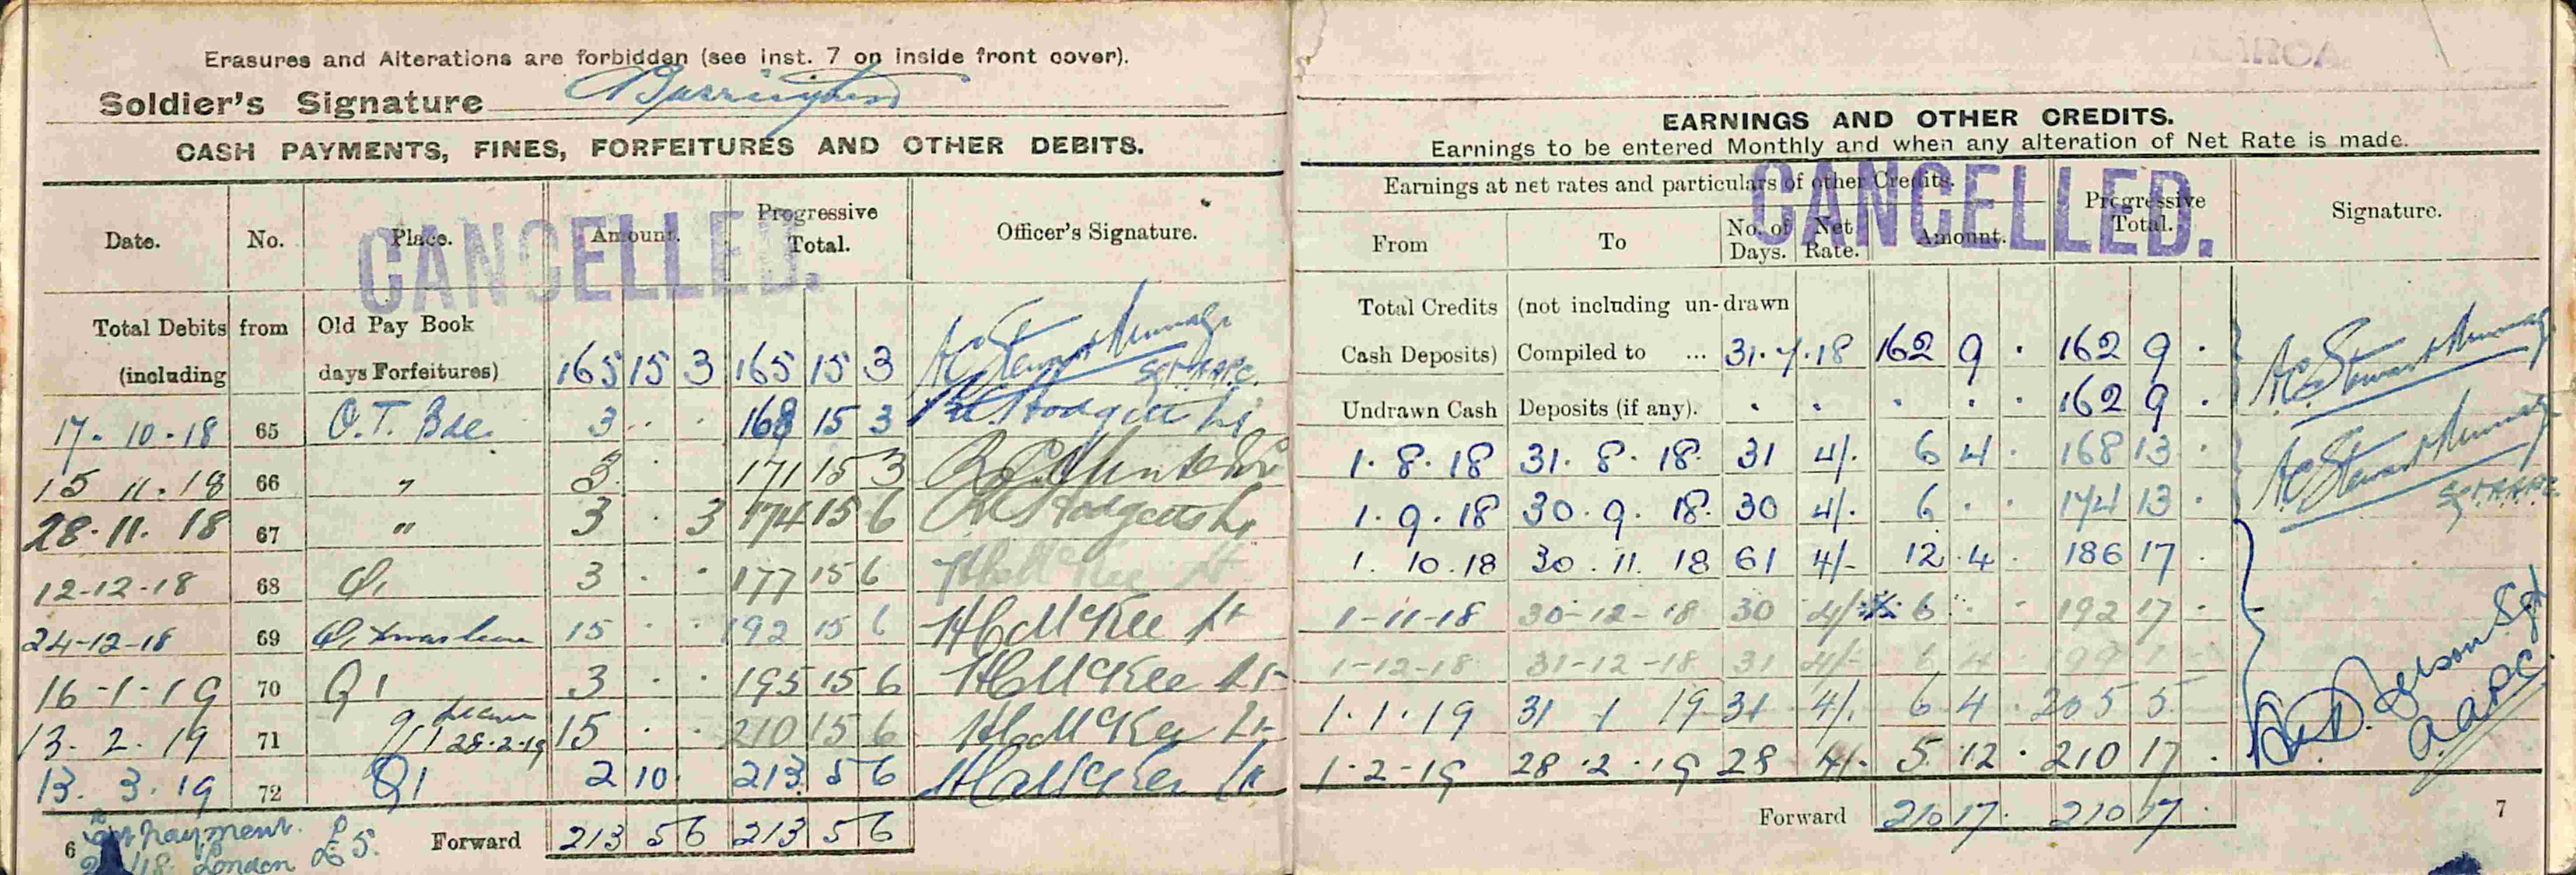 Erasures and Alterations are forbidden (see inst. 7 on inside front cover).
Soldier's Signature
CASH PAYMENTS, FINES, FORFEITURES AND OTHER DEBITS.
Date. No. Place. Amount. Progressive Total. Officer's Signature.
CANCELLED.
Total Debits from Old Pay Book
(including days Forfeitures) 165 15 3 165 15 3 Sgt AAPC.
17-10-18 65 O.T. Bde. 3 . . 168 15 3
15 11.18 66 " 3 . 171 15 3
28.11.18 67 " 3 . 3 174 15 6
12-12-18 68 3 . . 177 15 6
24-12-18 69 15 . . 192 15 6 McKee Lt
16-1-19 70 Q1 3 . . 195 15 6 McKee Lt
13.2.19 71 28.2.19 15 . . 210 15 6 McKee Lt
13.3.19 72 Q1 2 10 213 5 6 McKee Lt
6 payment. London £5. Forward 213 5 6 213 5 6
EARNINGS AND OTHER CREDITS.
Earnings to be entered Monthly and when any alteration of Net Rate is made.
Earnings at net rates and particulars of other Credits.
From To No. of Days. Net Rate. Amount. Progressive Total. Signature.
CANCELLED.
Total Credits (not including un-drawn
Cash Deposits) Compiled to ... 31.7.18 162 9 . 162 9 .
Undrawn Cash Deposits (if any). . . . . . 162 9 .
1.8.18 31.8.18. 31 4/. 6 4 . 168 13 .
1.9.18 30.9.18. 30 4/. 6 . . 174 13 . Sgt AAPC.
1.10.18 30.11.18 61 4/- 12 4 . 186 17 .
1-11-18 30-12-18 30 4/- 6 . . 192 17 .
1-12-18 31-12-18 31 4/- 6 4 199 1 -
1.1.19 31 1 19 31 4/. 6 4 . 205 5 Sgt
1-2-19 28.2.19 28 4/- 5 12 . 210 17 . A.A.P.C.
Forward 210 17 . 210 17 .
7